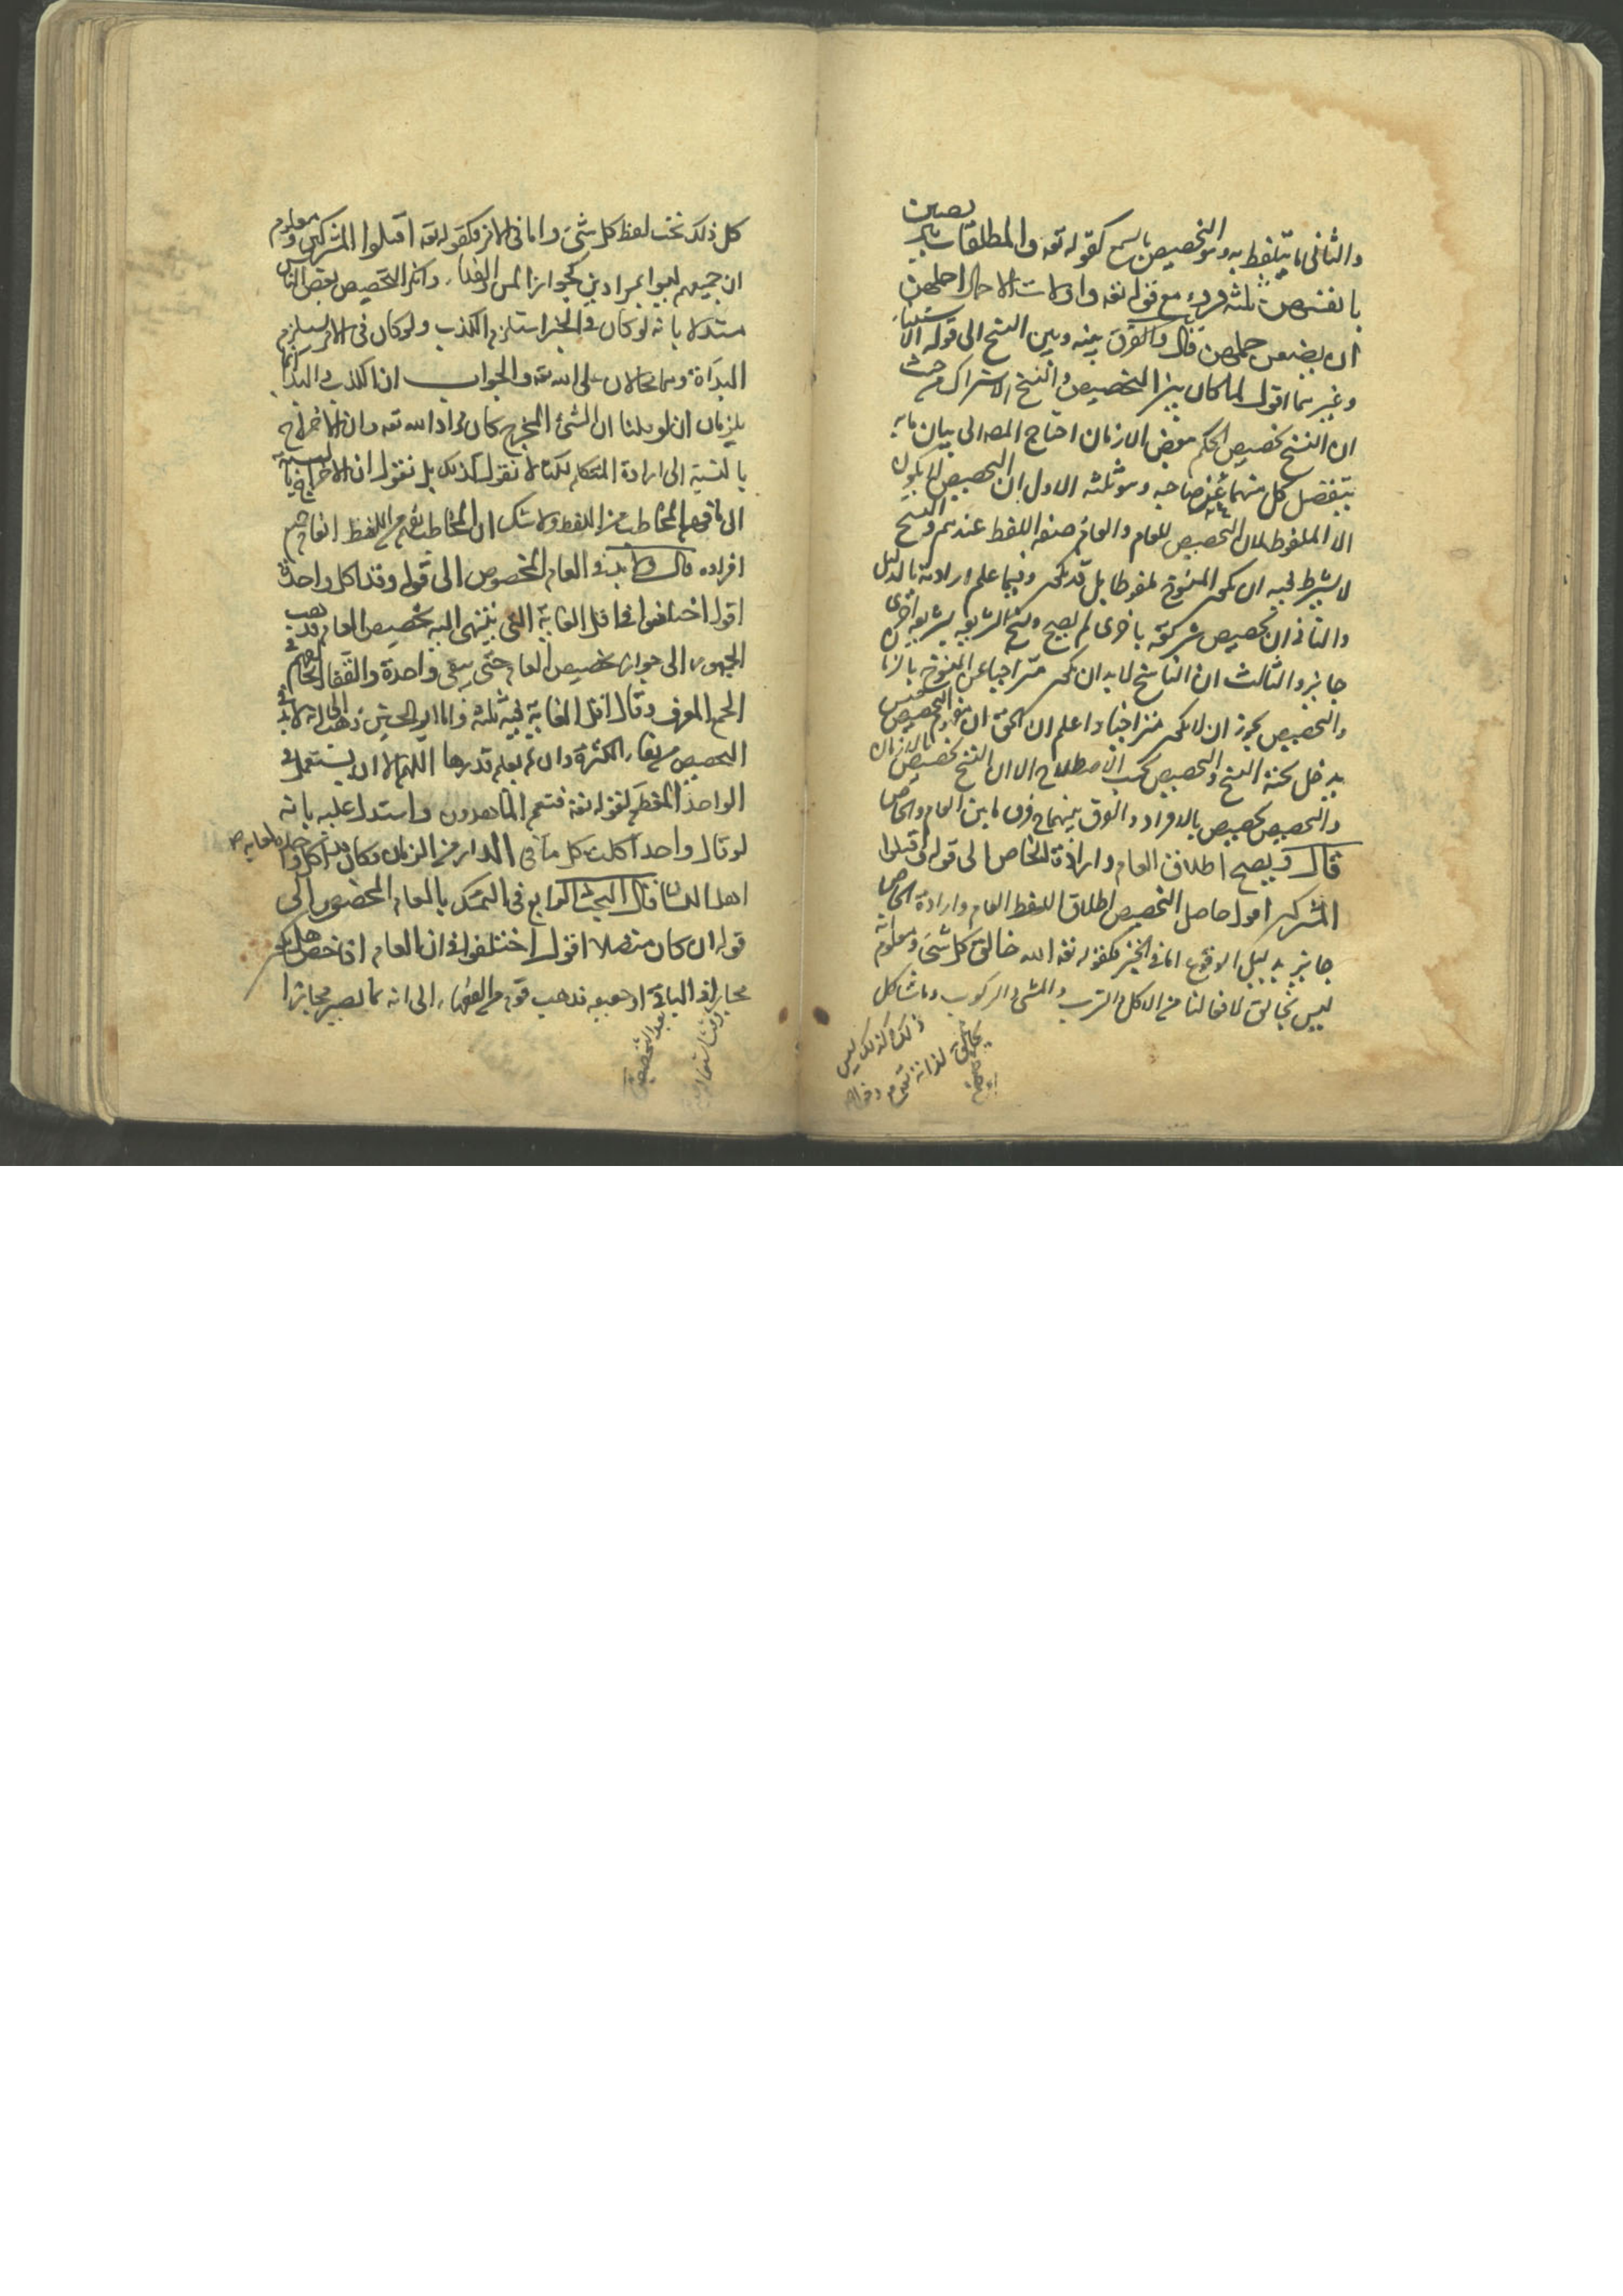 والثانى ما يتلفظ به وهو التخصيص بالسمع كقوله تعه والمطلقات يتربصن
بانفسهن ثلثة قروء مع قوله تعه واولات الاحمال اجلهن
ان يضعن حملهن قال والفرق بينه وبين النسخ الى قوله الاستثناء
وغيرهما اقول لما كان بين التخصيص والنسخ الاشتراك من حيث
ان النسخ تخصيص الحكم ببعض الازمان احتاج المصه الى بيان ما به
ينفصل كل منهما عن صاحبه وهو ثلثة الاول ان التخصيص لا يكون
الا لملفوظ لان التخصيص للعام والعام صفه اللفظ عندهم والنسخ
لا يشترط فيه ان يكون المنسوخ ملفوظا بل قد يكون فيما علم ارادته بالدليل
والثانى ان تخصيص شريعة باخرى لم يصح ونسخ الشريعه بشريعه اخرى
جايز والثالث ان الناسخ لا بد ان يكون متراخيا عن المنسوخ بالزمان
والتخصيص يجوز ان لا يكون متراخيا واعلم ان الحق ان مفهوم التخصيص جنس
يدخل تحته النسخ والتخصيص بحسب الاصطلاح الا ان النسخ تخصيص بالازمان
والتخصيص تخصيص بالافراد والفرق بينهما فرق ما بين العام والخاص
قال ويصح اطلاق العام وارادة الخاص الى قوله اقتلوا
المشركين اقول حاصل التخصيص اطلاق اللفظ العام وارادة الخاص
جايز بدليل الوقوع اما فى الخبر فكقوله تعه الله خالق كل شئ ومعلوم انه
ليس بخالق لافعالنا من الاكل والشرب والمشى والركوب وما شاكل
ذلك وكذلك ليس
بخالق لذاته تعه
كل ذلك تحت لفظ كل شئ واما فى الامر فكقوله تعه اقتلوا المشركين ومعلوم
ان جميعهم ليسوا بمرادين وانكر التخصيص بعض الناس
مستدلا بانه لو كان فى الخبر استلزم الكذب ولو كان فى الامر استلزم
البداءة وهما محالان على الله تعه والجواب ان الكذب والبداء انما
يلزمان ان لو قلنا ان الشئ المخرج كان مراد الله تعه وان الاخراج
بالنسبة الى ارادة المتكلم لكنا لا نقول كذلك بل نقول ان الاخراج بالنسبة
الى ما فهم المخاطب من اللفظ ولا شك ان المخاطب يفهم من اللفظ العام جميع
افراده قال ولا بد فى العام المخصوص الى قوله وقتا كل واحدة
اقول اختلفوا فى اقل الغاية التى ينتهى اليه تخصيص العام فذهب
الجمهور الى جواز تخصيص العام حتى يبقى واحدة والقفال خالفهم فى
الجمع المعرف وقال اقل الغاية فيه ثلثة واما ابو الحسين ذهب الى انه لا بد فى
التخصيص من بقاء الكثرة وان لم يعلم قدرها اللهم الا ان يستعمل فى
الواحد المعظم لقوله تعه فنعم الماهدون واستدل عليه بانه
لو قال واحد اكلت كل ما فى الدار من الرمان وكان قد اكل واحدة لعابه
اهل اللسان قال البحث الرابع فى التمسك بالعام المخصوص الى
قوله ان كان متصلا اقول اختلفوا فى ان العام اذا خص هل يكون
مجازا فى الباقى او حقيقه فذهب قوم من الفقهاء الى انه لا يصير مجازا
بعد التخصيص